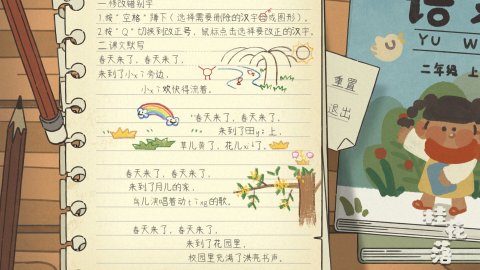 一修改错别字
1按“空格”蹲下（选择需要删除的汉字或图形）。
2按“Q”切换到改正号，鼠标点击选择要改正的汉字。
二课文默写
春天来了，春天来了。
来到了小x旁边，
小xi欢快得流着。
春天来了，春天来了，
来到了田yě上，
草儿黄了，花儿xi了。
春天来了，春天来了，
来到了月儿的家，
鸟儿演唱着动ting的歌。
春天来了，春天来了，
来到了花园里，
校园里充满了洪亮书声。
重置
退出
语文
YU W
二年级 上